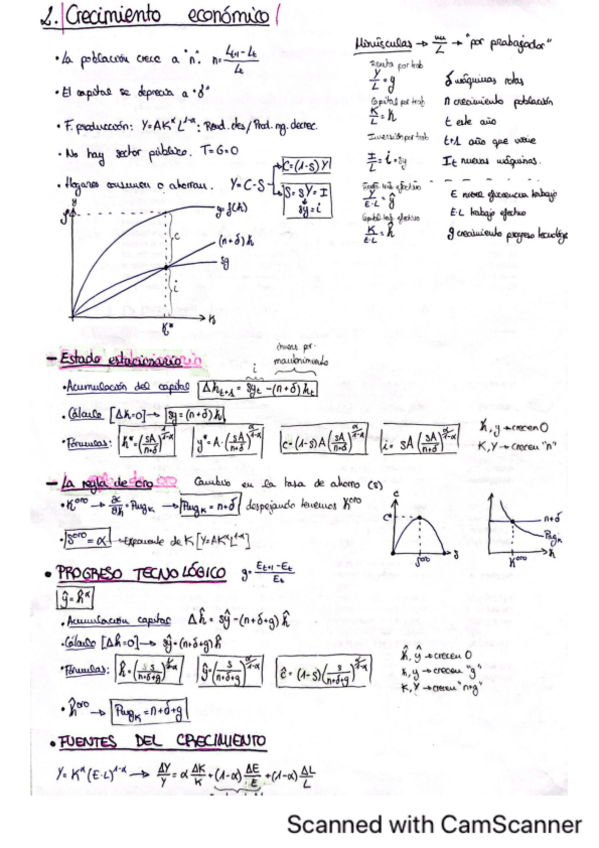 2. Crecimiento económico
• La población crece a "n". n = (L_{t+1} - L_t) / L_t
• El capital se deprecia a "δ"
• F. producción: Y = AK^α L^{1-α}: Rend. des / Prod. mg. decrec.
• No hay sector público. T=G=0
• Hogares consumen o ahorran. Y = C - S
C = (1-s) Y
S = sY = I
sy = i
Minúsculas → → "por trabajador"
Renta por trab
Y/L = y
Capital por trab
K/L = k
Inversión por trab
I/L = i = sy
Y/(E·L) = ŷ
K/(E·L) = k̂
δ máquinas rotas
n crecimiento población
t este año
t+1 año que viene
I_t nuevas máquinas.
E·L trabajo efectivo
g crecimiento progreso tecnológic
y
y = f(k)
c
(n+δ)k
sy
i
k*
k
– Estado estacionario
i
mantenimiento
• Acumulación del capital Δk_{t+1} = sy_t - (n+δ)k_t
• Cálculo [Δk=0] → sy = (n+δ)k
• Fórmulas: k* = (sA/(n+δ))^{1/(1-α)} y* = A·(sA/(n+δ))^{α/(1-α)} c = (1-s)A(sA/(n+δ))^{α/(1-α)} i = sA(sA/(n+δ))^{α/(1-α)}
k, y → crecen 0
K, Y → crecen "n"
– La regla de oro Cambio en la tasa de ahorro (s)
• k^{oro} → ∂c/∂k = Pmg_K → Pmg_K = n+δ despejando tenemos k^{oro}
• s^{oro} = α → Exponente de K [Y=AK^αL^{1-α}]
c
c*
s^{oro}
n+δ
Pmg_K
k^{oro}
k
• PROGRESO TECNOLÓGICO g = (E_{t+1} - E_t) / E_t
ŷ = k̂^α
• Acumulación capital Δk̂ = sŷ - (n+δ+g) k̂
• Cálculo [Δk=0] → sŷ = (n+δ+g)k̂
• Fórmulas: ŷ = (s/(n+δ+g))^{α/(1-α)} ĉ = (1-s)(s/(n+δ+g))^{α/(1-α)}
k̂, ŷ → crecen 0
k, y → crecen "g"
K, Y → crecen "n+g"
• k̂^{oro} → Pmg_K = n+δ+g
• FUENTES DEL CRECIMIENTO
Y = K^α (E·L)^{1-α} → ΔY/Y = α ΔK/K + (1-α) ΔE/E + (1-α) ΔL/L
Scanned with CamScanner